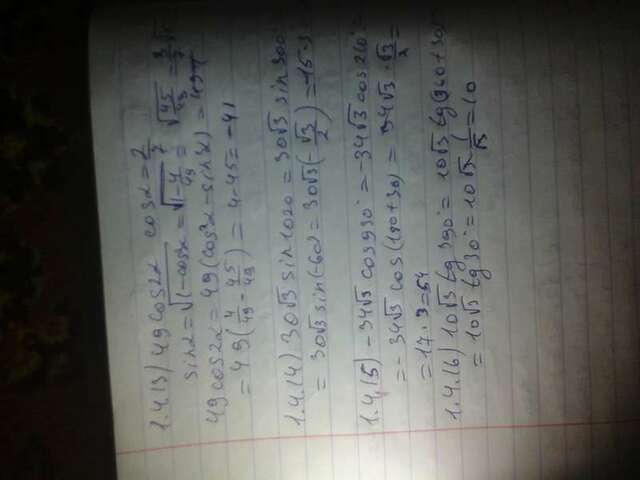 1.4.(3) 49 cos2α cosα = 2/7
sinα = √1-cos²α = √1-4/49 = √45/49 = 3/7√5
49cos2α = 49(cos²α - sin²α) =
= 49(4/49 - 45/49) = 4-45 = -41
1.4.(4) 30√3 sin1020 = 30√3 sin300° =
= 30√3 sin(-60) = 30√3(-√3/2) = -15·3
1.4.(5) -34√3 cos930° = -34√3 cos210° =
= -34√3 cos(180+30) = 34√3·√3/2 =
= 17·3 = 54
1.4.(6) 10√3 tg390° = 10√3 tg(360+30) =
= 10√3 tg30° = 10√3·1/√3 = 10